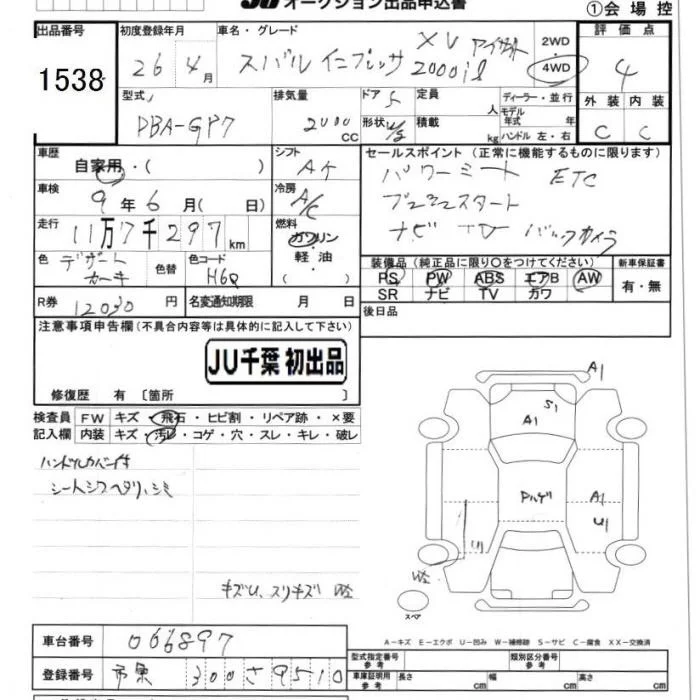 JU オークション出品申込書
①会場控
出品番号 初度登録年月 車名・グレード 評価点
1538 26年4月 スバル インプレッサ XV アイサイト 2000il 2WD・4WD 4
外装 内装
C C
型式 排気量 ドア 定員 ディーラー・並行
DBA-GP7 2000 CC 5 人 モデル年式 年
形状 積載 kg ハンドル 左・右
車歴 シフト セールスポイント (正常に機能するものに限ります)
自家用・( ) Aケ
車検 冷房 パワーミート ETC
9年6月(日) A/C プッシュスタート
走行 燃料 ナビ TV バックカメラ
11万7千297km ガソリン・軽油・( )
色 デザートカーキ 色替 色コード H6Q
装備品 (純正品に限り○をつけてください) 新車保証書
PS PW ABS エアB AW 有・無
SR ナビ TV カワ
R券 12030円 名変通知期限 月 日 後日品
注意事項申告欄 (不具合内容等は具体的に記入して下さい)
JU千葉 初出品
修復歴 有 〔箇所 〕
検査員 FW キズ・飛石・ヒビ割・リペア跡・×要
記入欄 内装 キズ・汚レ・コゲ・穴・スレ・キレ・破レ
ハンドルカバー付
シートシワ ヘタリ、シミ
キズU、スリキズ W2
A1
S1
A1
Pハゲ
A1
U1
U1
W2
スペア
A-キズ E-エクボ U-凹み W-補修跡 S-サビ C-腐食 XX-交換済
車台番号 066897 型式指定番号 参考 類別区分番号 参考
登録番号 千葉 300 さ 9510 車庫証明用 参考 長さ cm 幅 cm 高さ cm